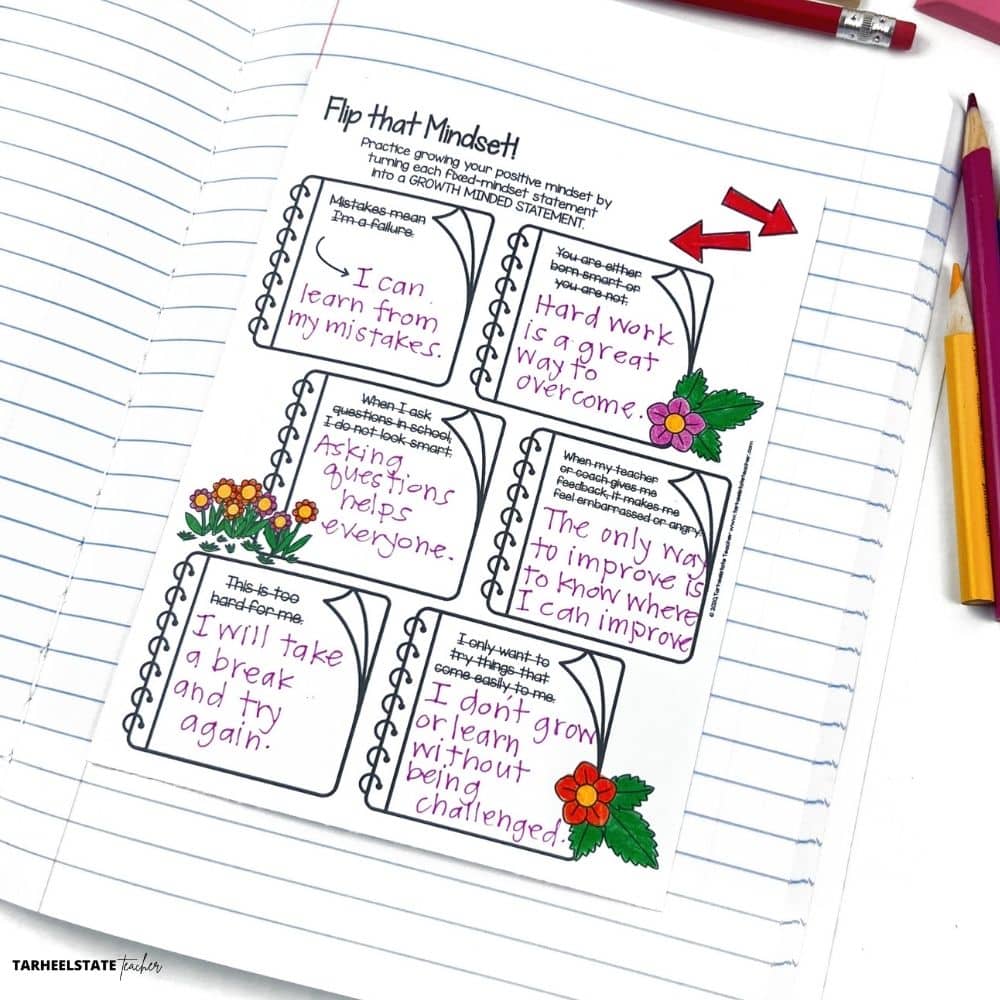 Flip that Mindset!
Practice growing your positive mindset by
turning each fixed-mindset statement
into a GROWTH MINDED STATEMENT.
Mistakes mean
I'm a failure.
I can
learn from
my mistakes.
You are either
born smart or
you are not.
Hard work
is a great
way to
overcome.
When I ask
questions in school,
I do not look smart.
Asking
questions
helps
everyone.
When my teacher
or coach gives me
feedback, it makes me
feel embarrassed or angry
The only way
to improve is
to know where
I can improve
This is too
hard for me.
I will take
a break
and try
again.
I only want to
try things that
come easily to me.
I don't grow
or learn
without
being
challenged.
© 2020 Tarheelstate Teacher www.tarheelstateteacher.com
TARHEELSTATE Teacher